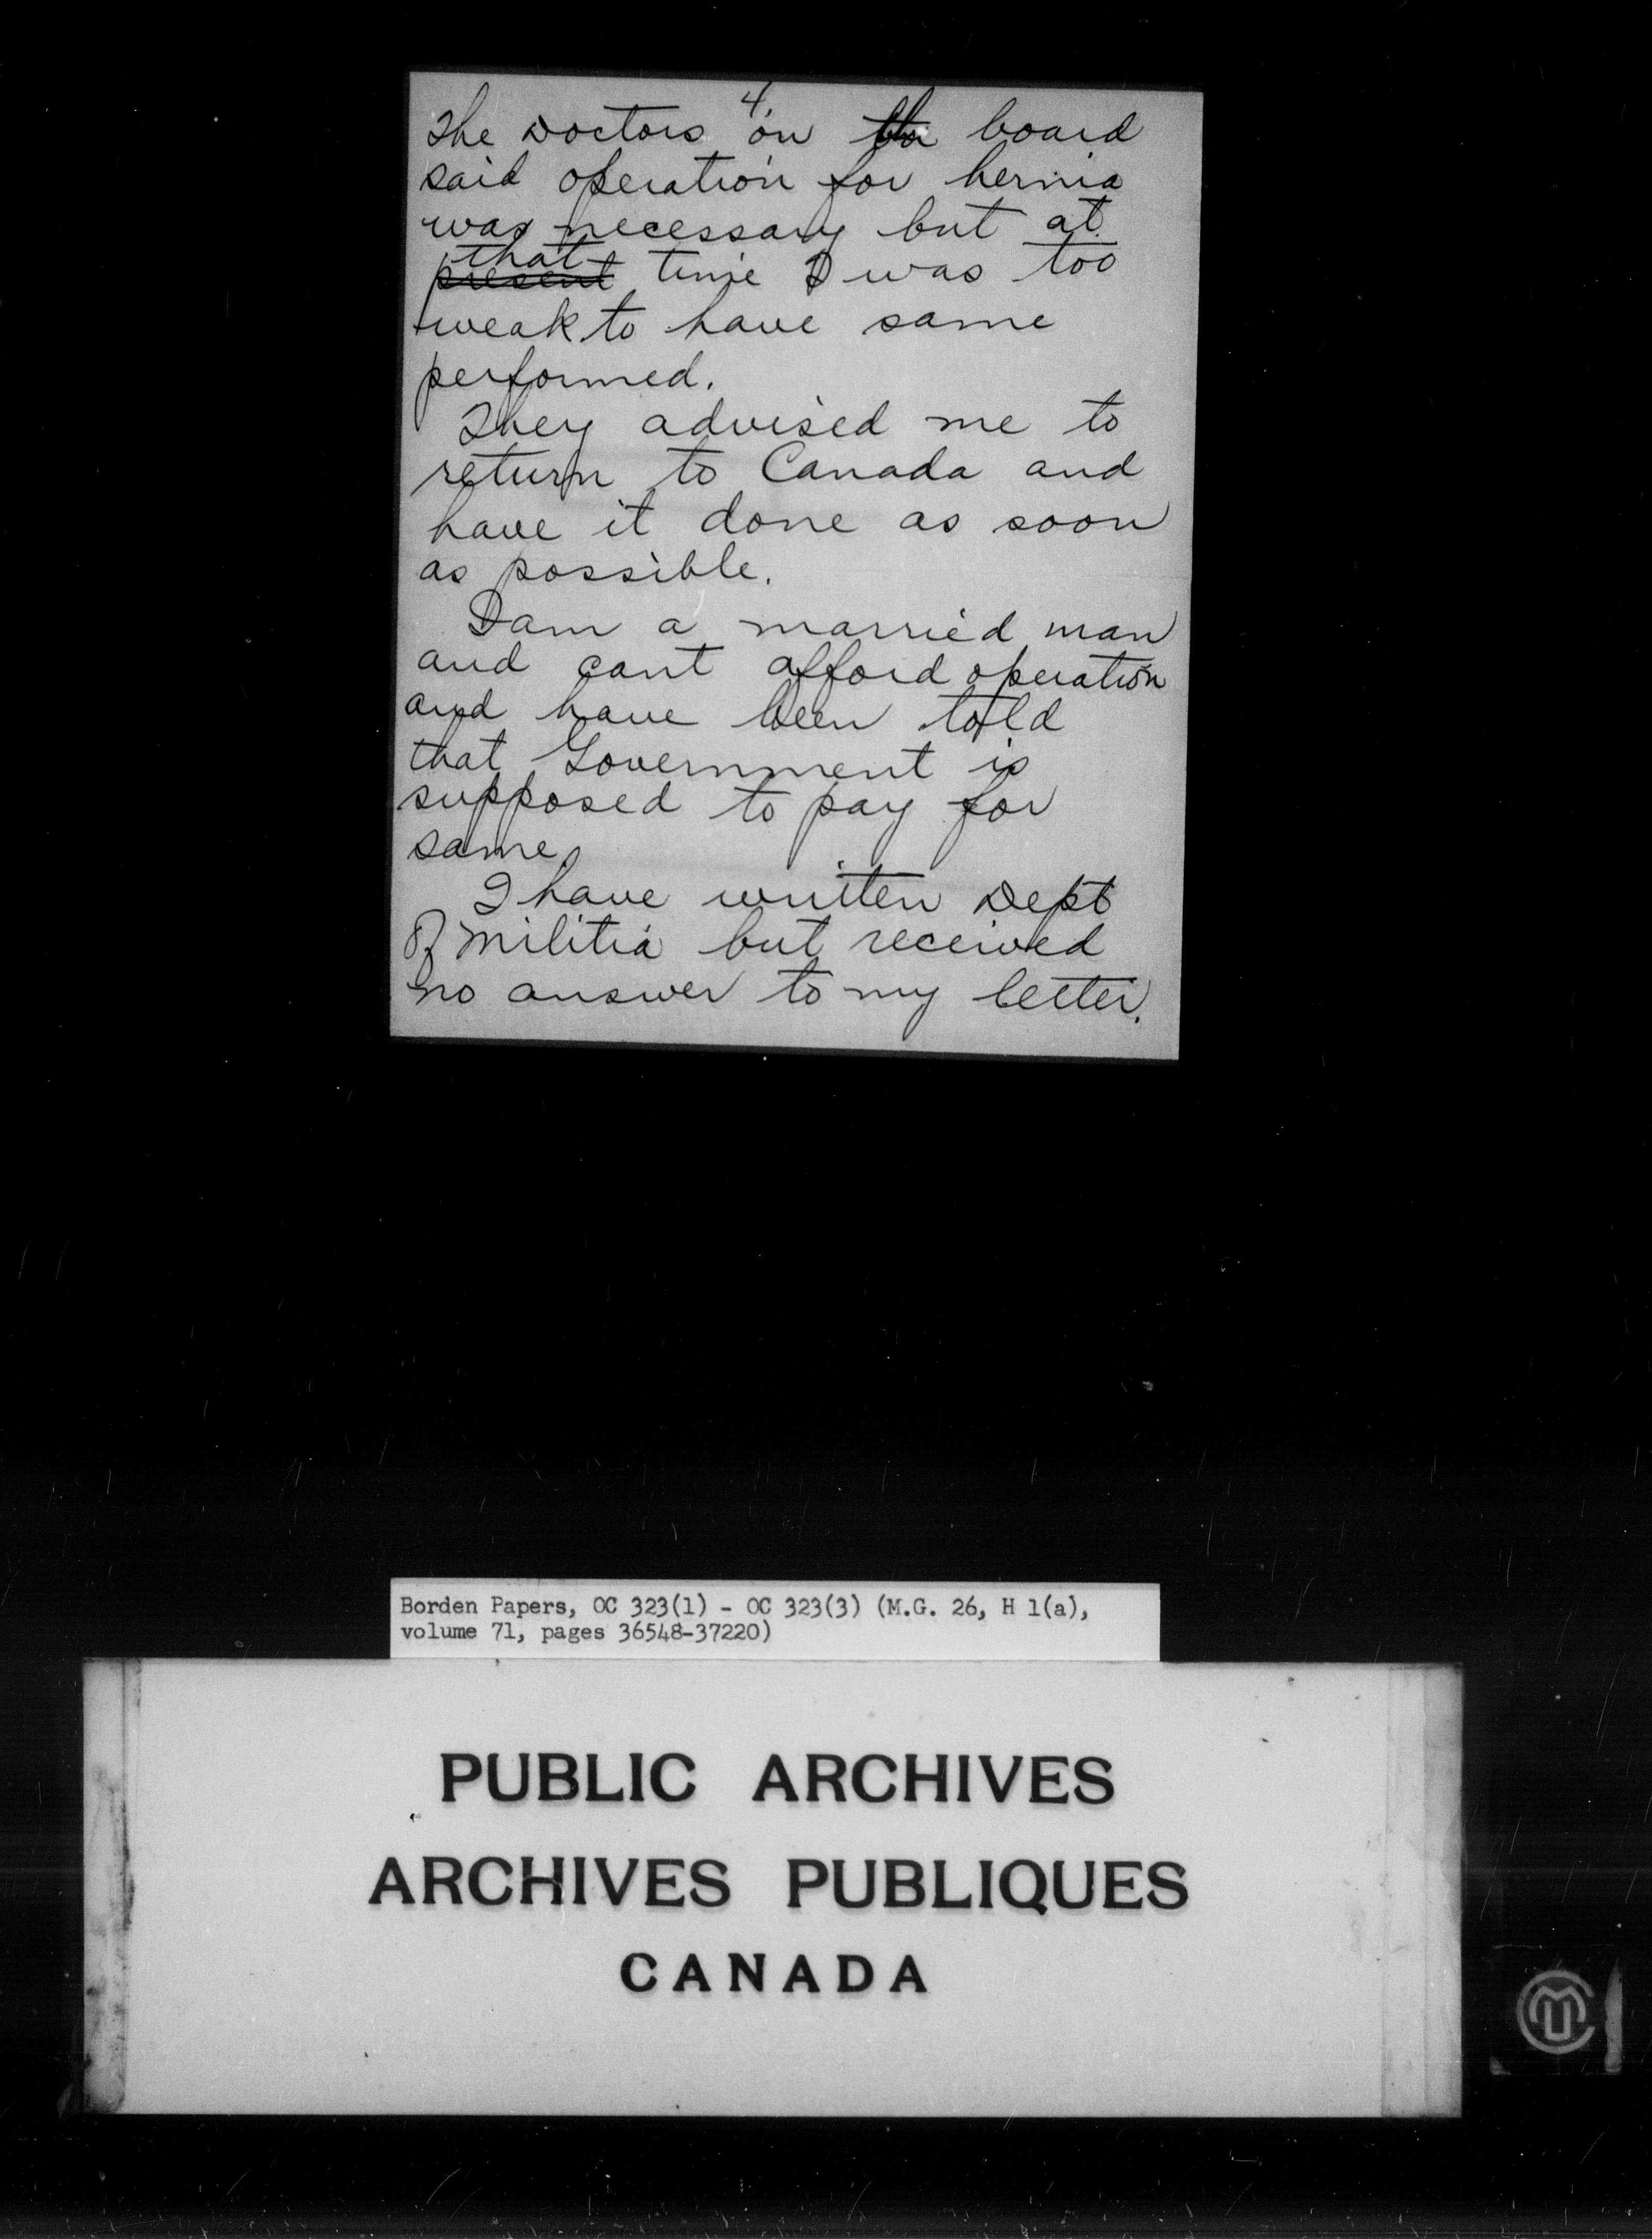 4.
The Doctors on the board
said operation for hernia
was necessary but at
that
present time I was too
weak to have same
performed.
They advised me to
return to Canada and
have it done as soon
as possible.
I am a married man
and cant afford operation
and have been told
that Government is
supposed to pay for
same.
I have written Dept
Of Militia but received
no answer to my letter.
Borden Papers, OC 323(1) - OC 323(3) (M.G. 26, H 1(a),
volume 71, pages 36548-37220)
PUBLIC ARCHIVES
ARCHIVES PUBLIQUES
CANADA